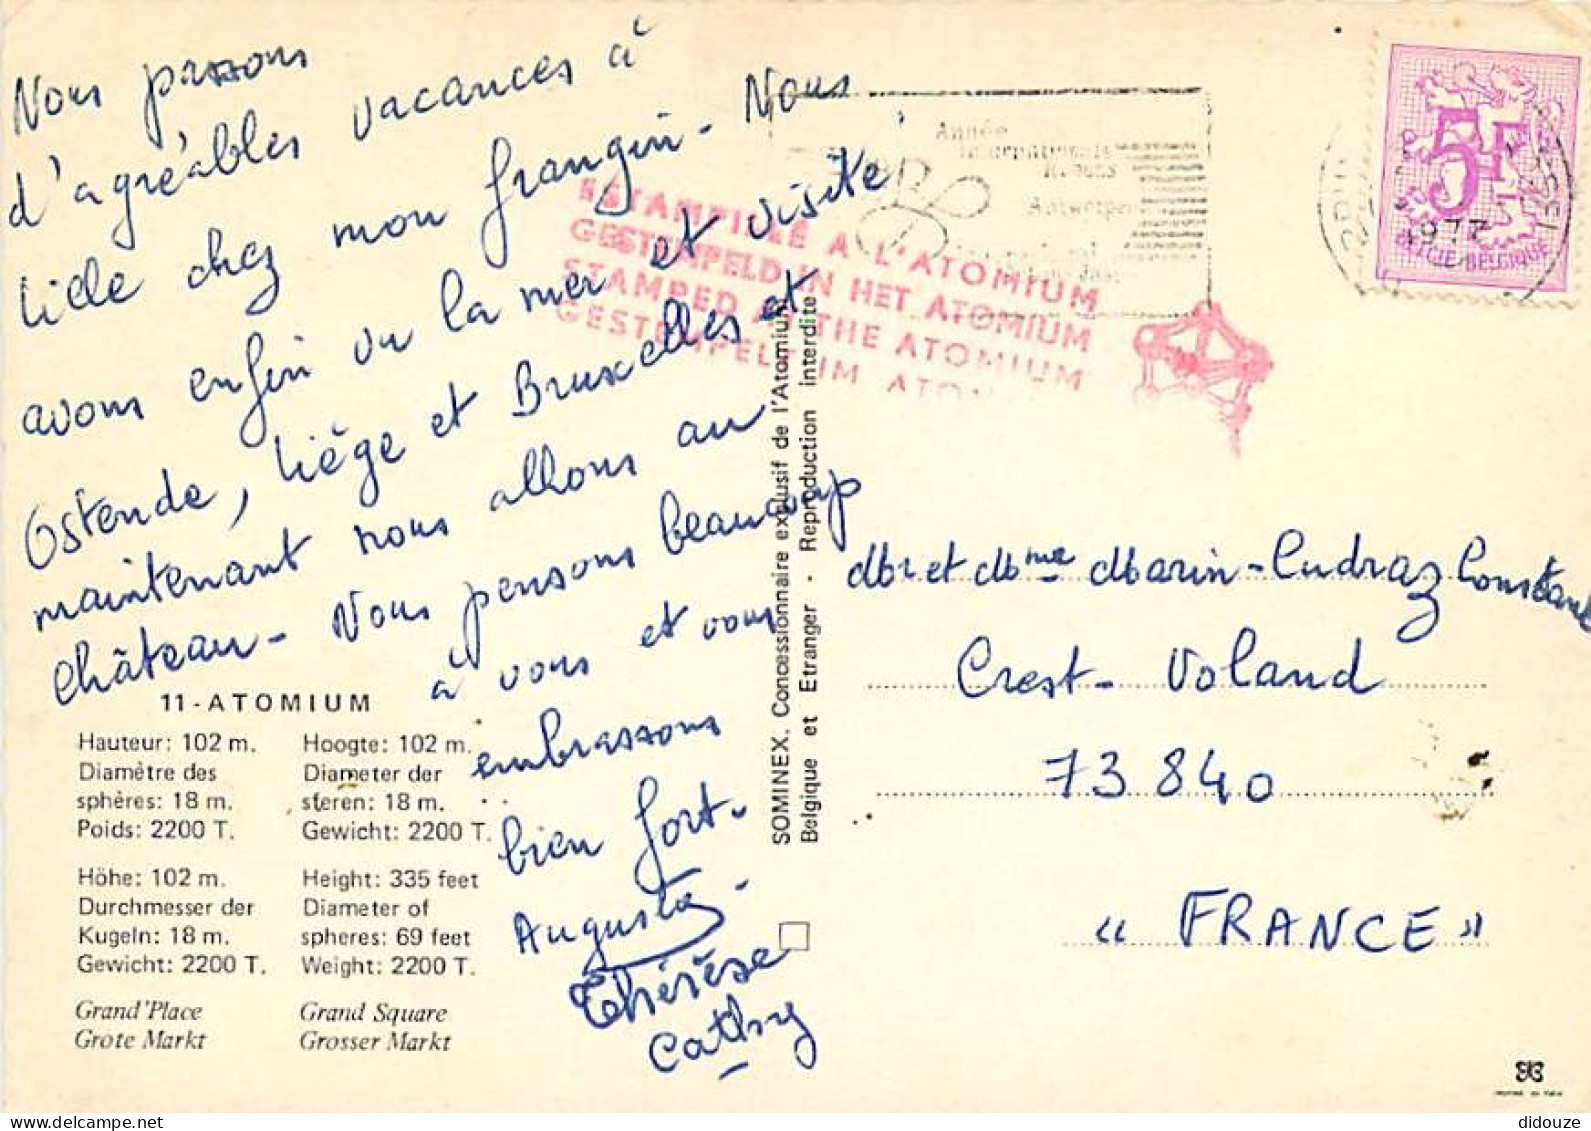 Nous passons
d'agréables vacances à
Lille chez mon frangin - Nous
avons enfin vu la mer et visité
Ostende, Liège et Bruxelles et
maintenant nous allons au
château - Nous pensons beaucoup
à vous et vous
embrassons
bien fort.
Augusta
Thérèse
Cathy
11-ATOMIUM
Hauteur: 102 m.
Diamètre des
sphères: 18 m.
Poids: 2200 T.
Hoogte: 102 m.
Diameter der
steren: 18 m.
Gewicht: 2200 T.
Höhe: 102 m.
Durchmesser der
Kugeln: 18 m.
Gewicht: 2200 T.
Height: 335 feet
Diameter of
spheres: 69 feet
Weight: 2200 T.
Grand'Place
Grote Markt
Grand Square
Grosser Markt
SOMINEX. Concessionnaire exclusif de l'Atomium
Belgique et Etranger - Reproduction interdite
ESTAMPILLÉ A L'ATOMIUM
GESTEMPELD IN HET ATOMIUM
STAMPED AT THE ATOMIUM
GESTEMPELT IM
Année
Internationale
Antwerpen
5F
BELGIE-BELGIQUE
Mr et Mme Marin-Cudraz Constant
Crest-Voland
73840
"FRANCE"
didouze